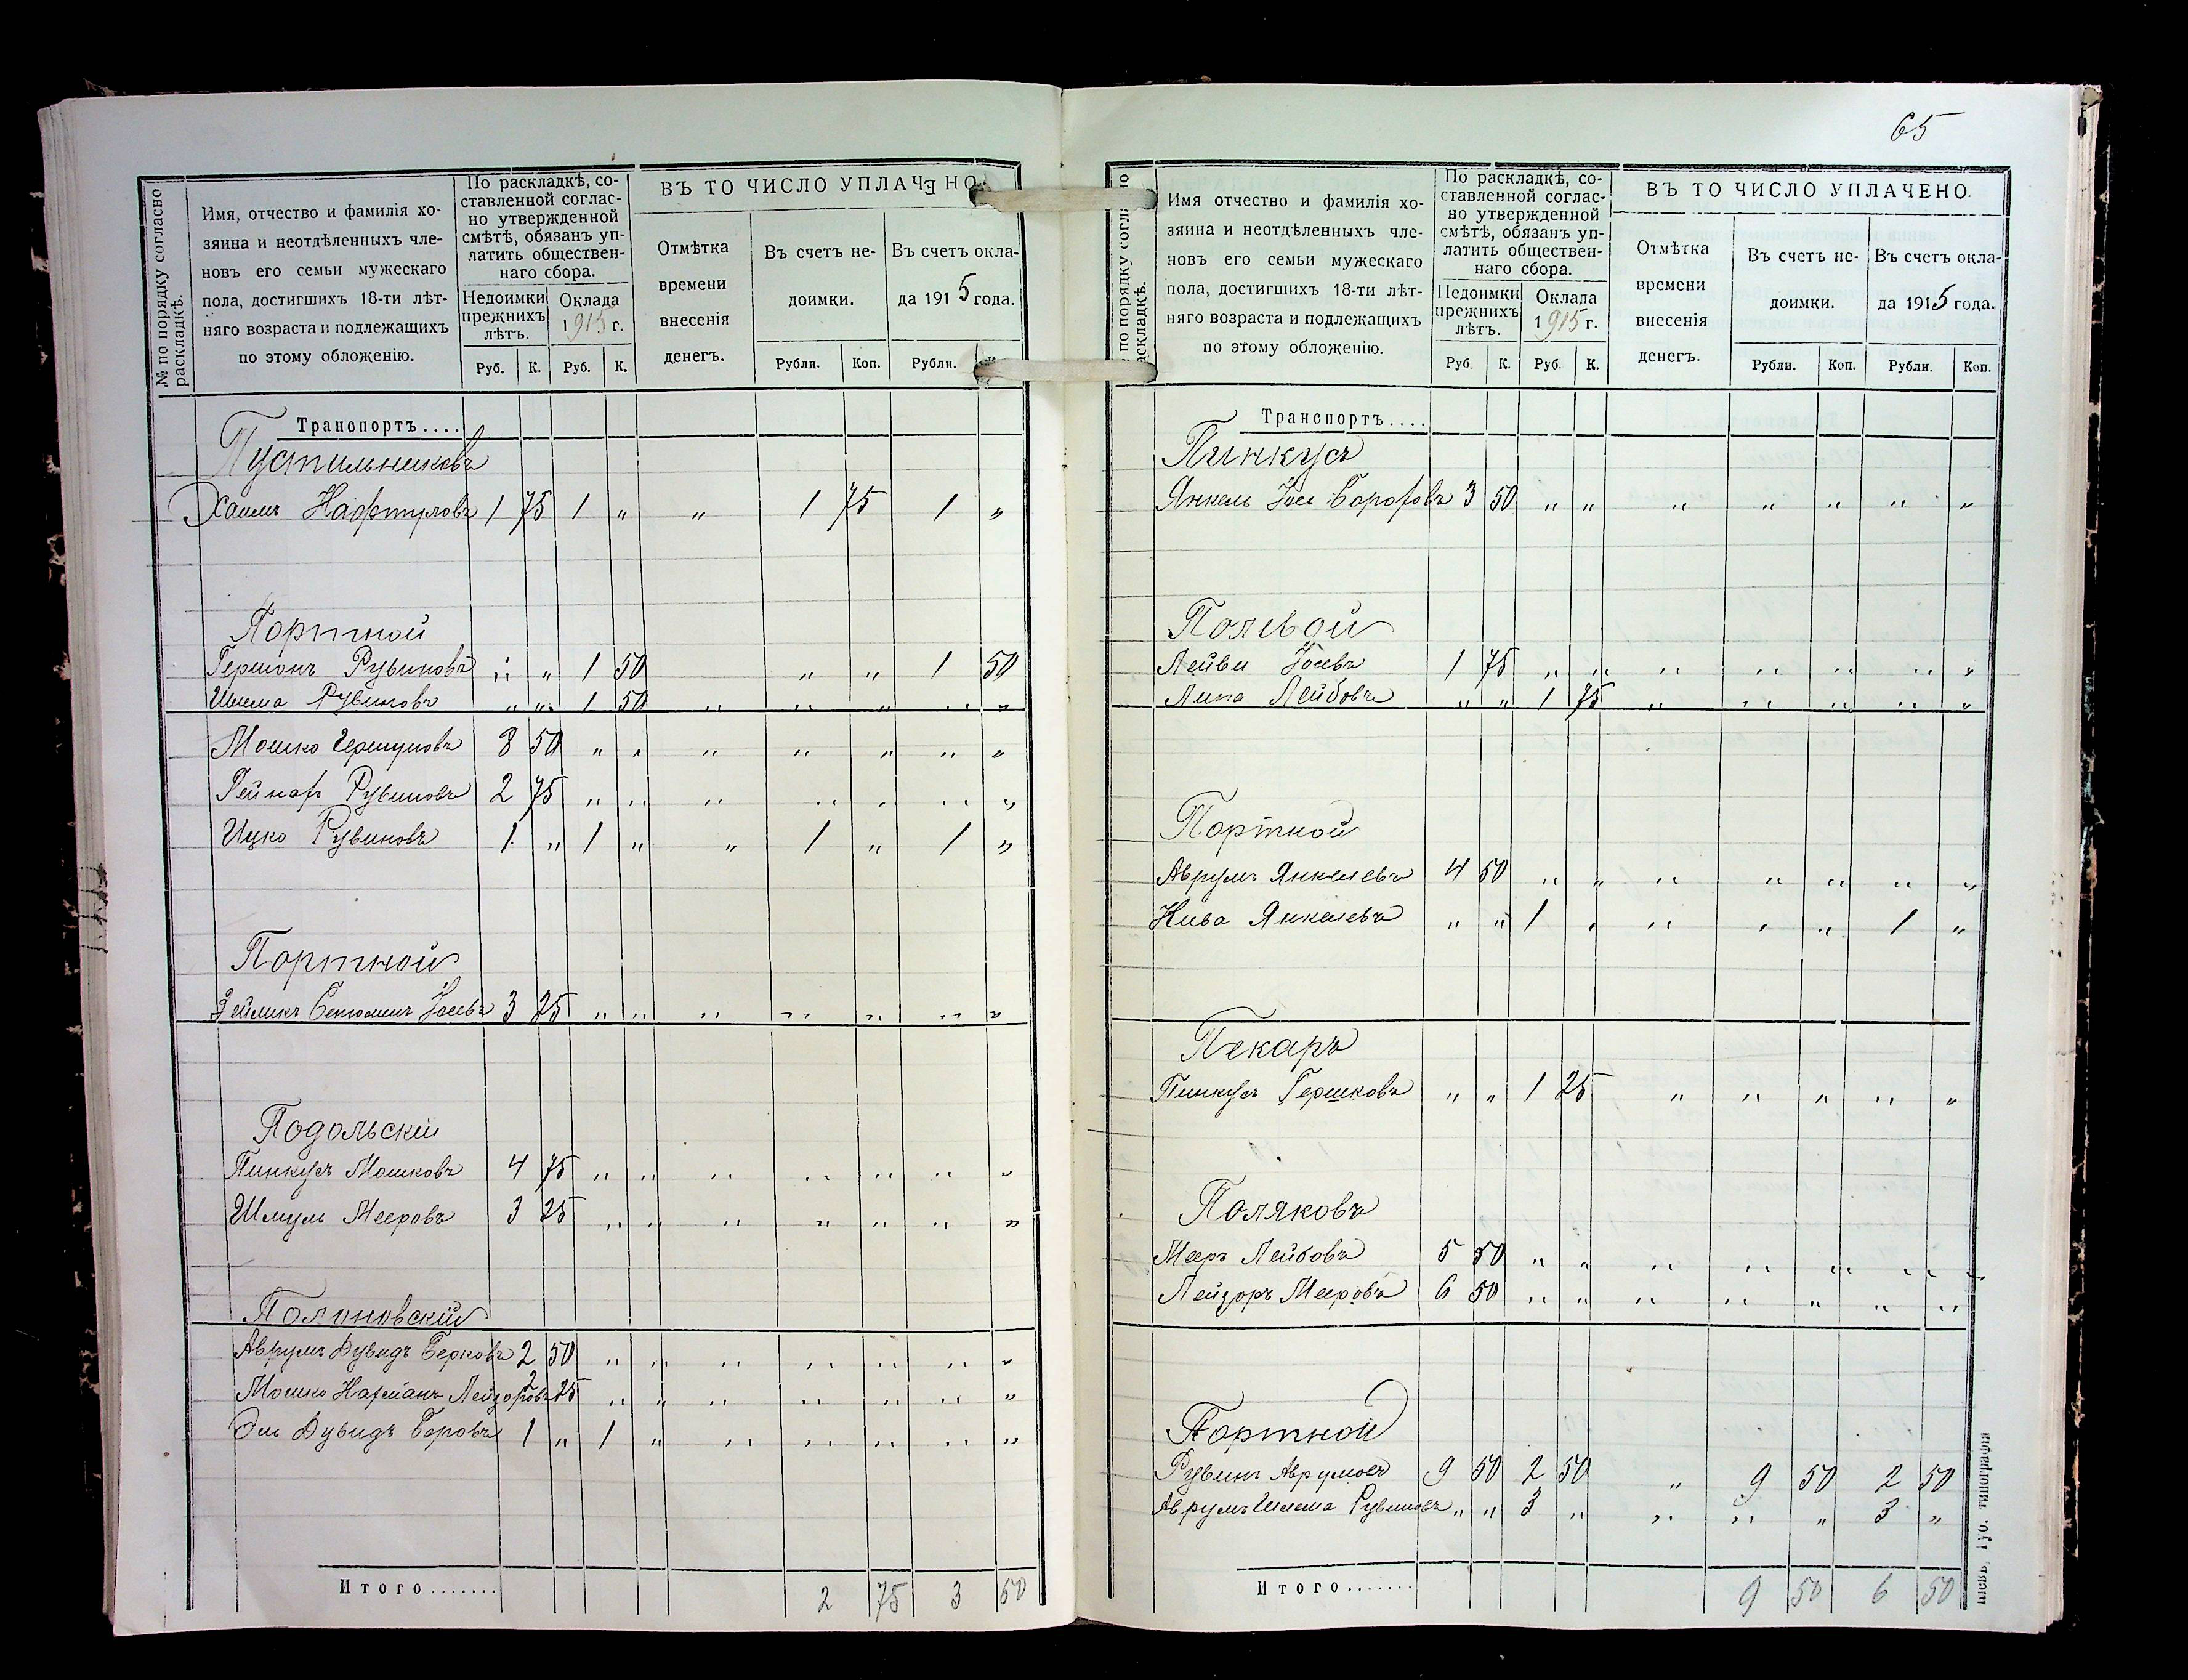 № по порядку согласно раскладкѣ.
Имя, отчество и фамилія хо-
зяина и неотдѣленныхъ чле-
новъ его семьи мужескаго
пола, достигшихъ 18-ти лѣт-
няго возраста и подлежащихъ
по этому обложенію.
По раскладкѣ, со-
ставленной соглас-
но утвержденной
смѣтѣ, обязанъ уп-
латить обществен-
наго сбора.
Недоимки
прежнихъ
лѣтъ.
Оклада
1915 г.
Руб. К. Руб. К.
ВЪ ТО ЧИСЛО УПЛАЧЕНО
Отмѣтка
времени
внесенія
денегъ.
Въ счетъ не-
доимки.
Въ счетъ окла-
да 1915 года.
Рубли. Коп. Рубли.
Транспортъ....
Пустильниковъ
Хаимъ Нафтуловъ 1 75 1 „ „ 1 75 1 „
Портной
Гершонъ Рувиновъ „ „ 1 50 „ „ 1 50
Шлема Рувиновъ „ „ 1 50 „ „ „ „ „
Мошко 8 50 „ „ „ „ „ „ „
Рувиновъ 2 75 „ „ „ „ „ „ „
Ицко Рувиновъ 1 „ 1 „ „ 1 „ 1 „
Портной
Зейликъ Бенюмин Іосевъ 3 25 „ „ „ „ „ „ „
Подольскій
Пинкусъ Мошковъ 4 75 „ „ „ „ „ „ „
Шмуль Мееровъ 3 25 „ „ „ „ „ „ „
Полоновскій
Аврумъ Дувидъ Берковъ 2 50 „ „ „ „ „ „ „
Мошко Нахманъ Лейзоровъ 2 25 „ „ „ „ „ „ „
Эль Дувидъ Беровъ 1 „ 1 „ „ „ „ „ „
Итого....... 2 75 3 50
65
по порядку согласно раскладкѣ.
Имя отчество и фамилія хо-
зяина и неотдѣленныхъ чле-
новъ его семьи мужескаго
пола, достигшихъ 18-ти лѣт-
няго возраста и подлежащихъ
по этому обложенію.
По раскладкѣ, со-
ставленной соглас-
но утвержденной
смѣтѣ, обязанъ уп-
латить обществен-
наго сбора.
Недоимки
прежнихъ
лѣтъ.
Оклада
1915 г.
Руб. К. Руб. К.
ВЪ ТО ЧИСЛО УПЛАЧЕНО.
Отмѣтка
времени
внесенія
денегъ.
Въ счетъ не-
доимки.
Въ счетъ окла-
да 1915 года.
Рубли. Коп. Рубли. Коп.
Транспортъ....
Пинкусъ
Янкель Іос 3 50 „ „ „ „ „ „ „
Полевой
Лейви Іосевъ 1 75 „ „ „ „ „ „ „
Липа Лейбовъ „ „ 1 75 „ „ „ „ „
Портной
Аврумъ Янкелевъ 4 50 „ „ „ „ „ „ „
Кива Янкелевъ „ „ 1 „ „ „ „ 1 „
Пекаръ
Пинкусъ Гершковъ „ „ 1 25 „ „ „ „ „
Поляковъ
Мееръ Лейбовъ 5 50 „ „ „ „ „ „ „
Лейзоръ Мееровъ 6 50 „ „ „ „ „ „ „
Портной
Рувинъ Аврумовъ 9 50 2 50 „ 9 50 2 50
Аврумъ Шлема Рувиновъ „ „ 3 „ „ „ „ 3 „
Итого....... 9 50 6 50
Губ. типографія